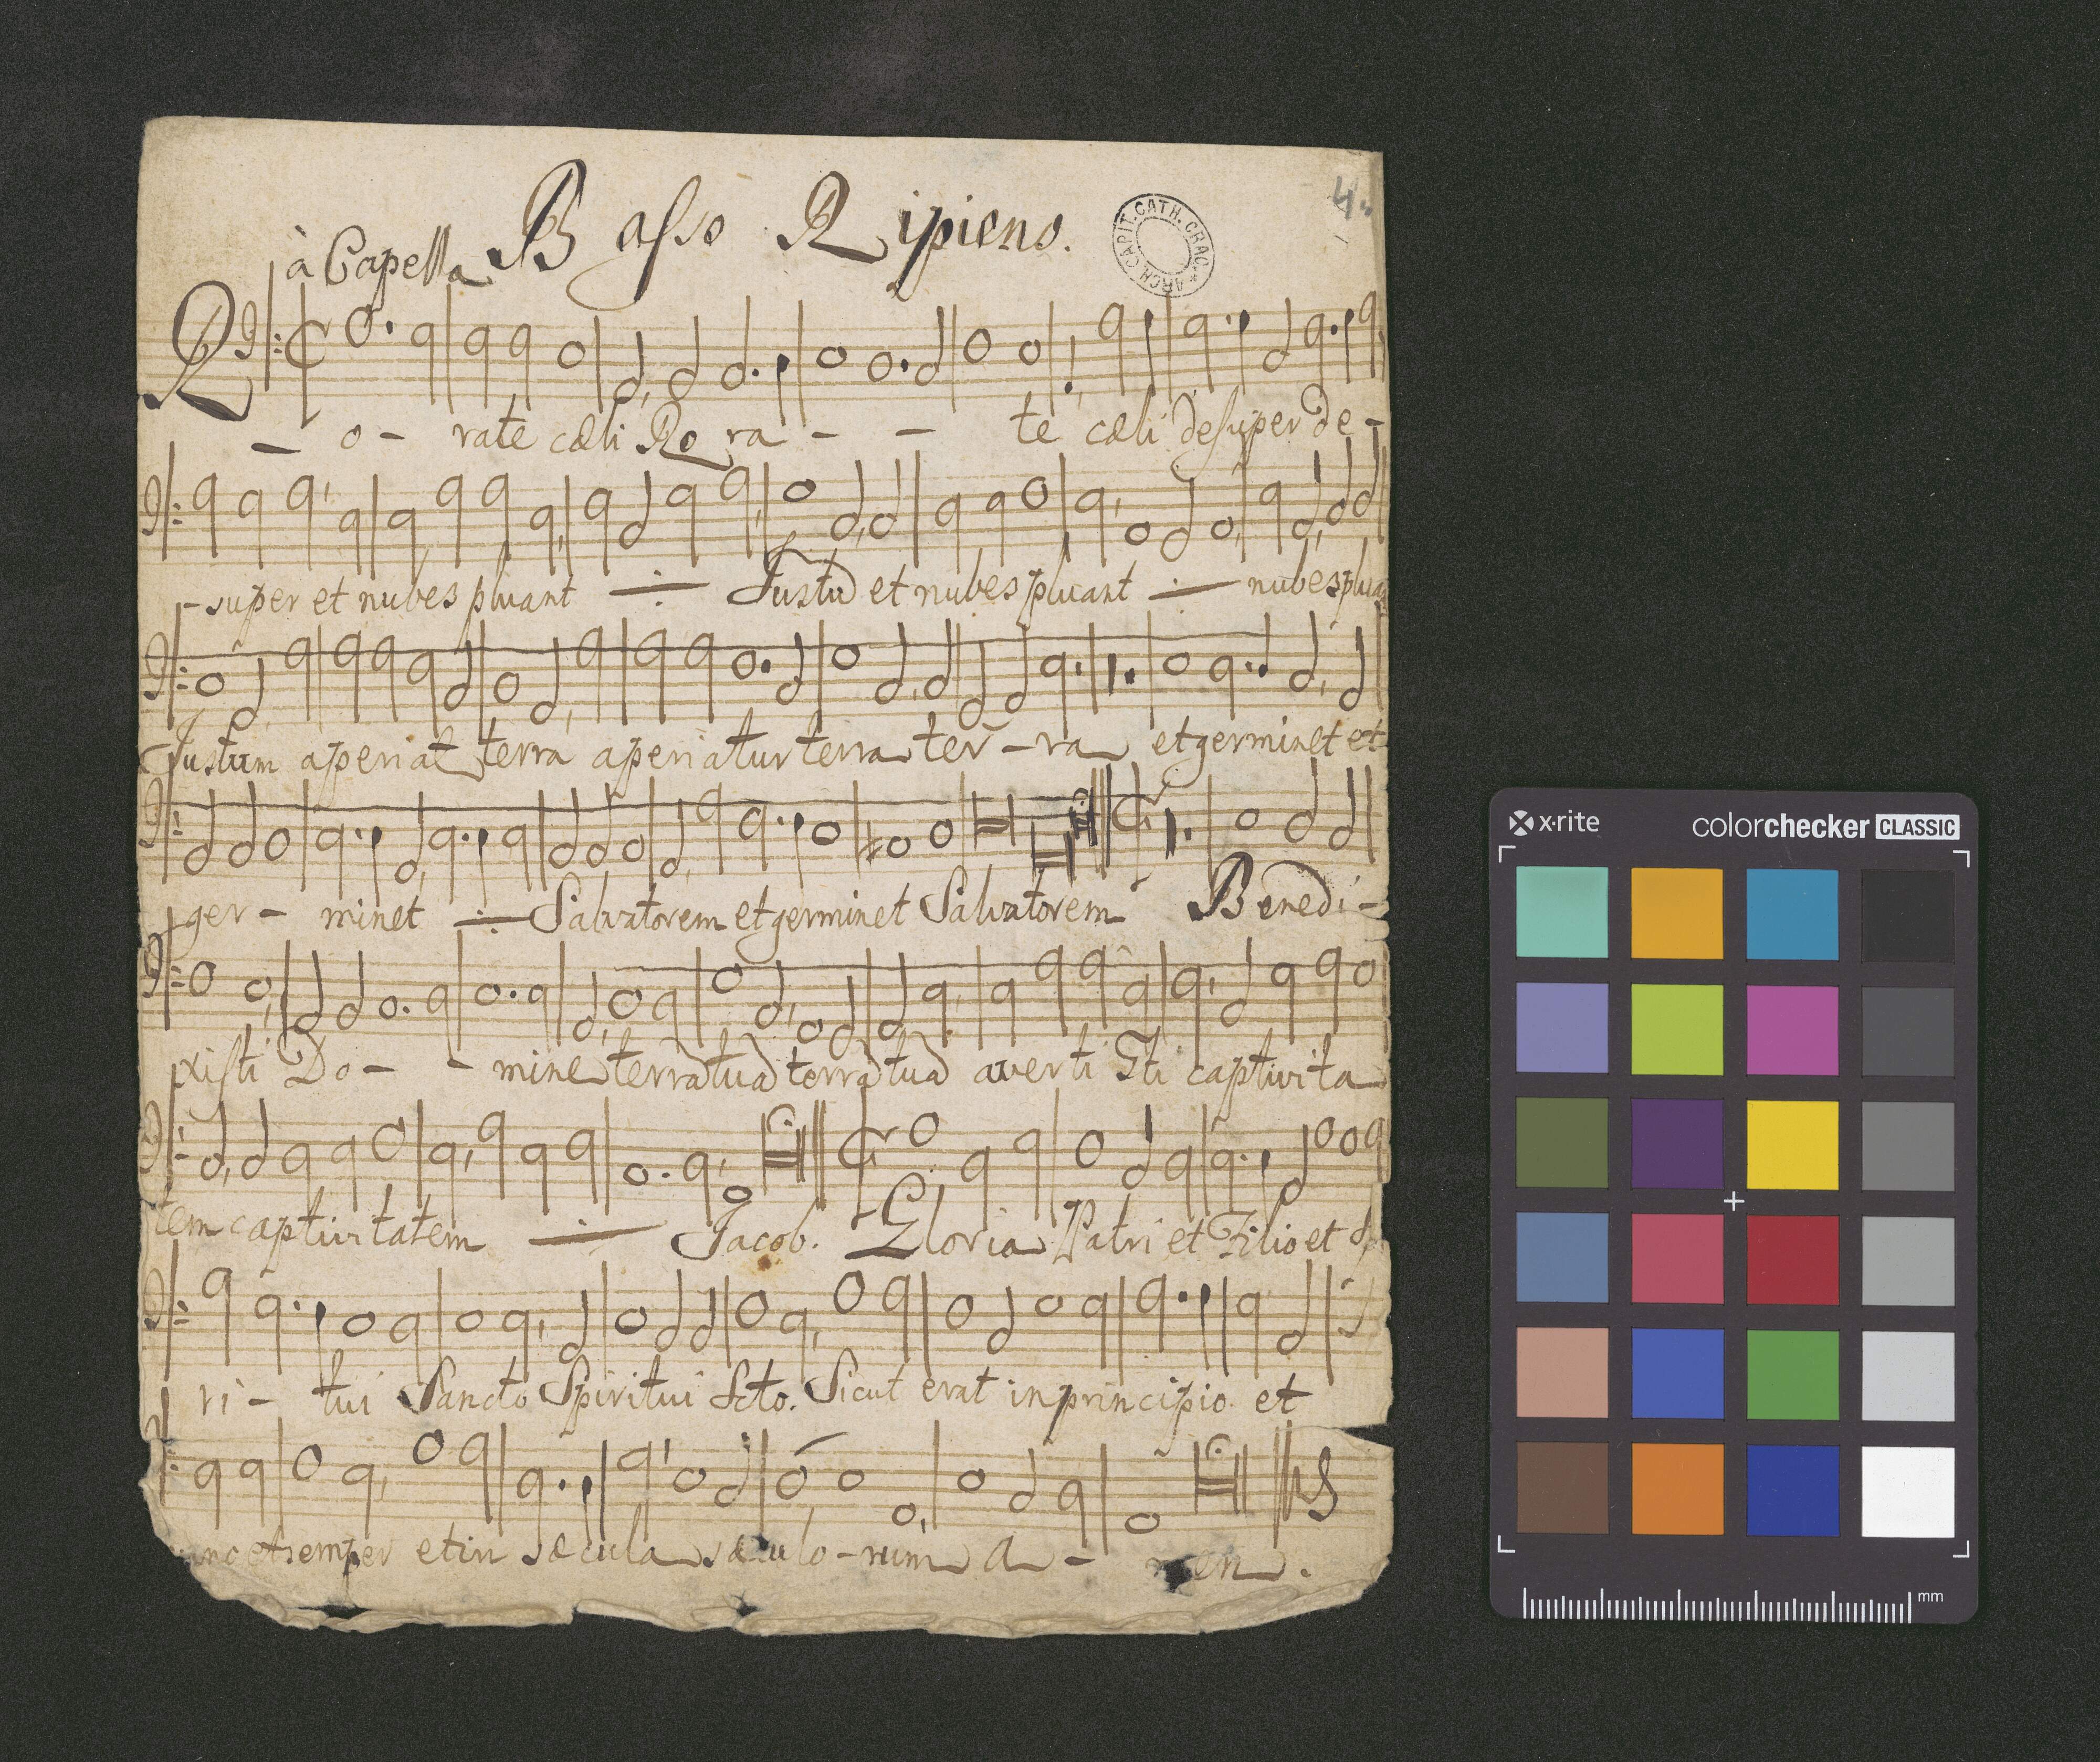 à Capella Basso Ripieno.
4.
ARCH. CAPIT. CATH. CRAC. *
R - o - rate cæli Ro ra - - te cæli desuper de -
- super et nubes pluant ·/· Justũ et nubes pluant ·/· nubes plua
Justum aperiat terra aperiatur terra ter - ra et germinet et
ger - minet ·/· Salvatorem et germinet Salvatorem Benedi -
xisti Do - - mine terrã tuã terrã tuã averti sti captivita
tem captivitatem ·/· Jacob. Gloria Patri et Filio et Sp
ri - tui Sancto Spiritui Scto. Sicut erat in principio et
nunc et semper et in sæcula sæculo - rum A - men.
x·rite colorchecker CLASSIC
mm